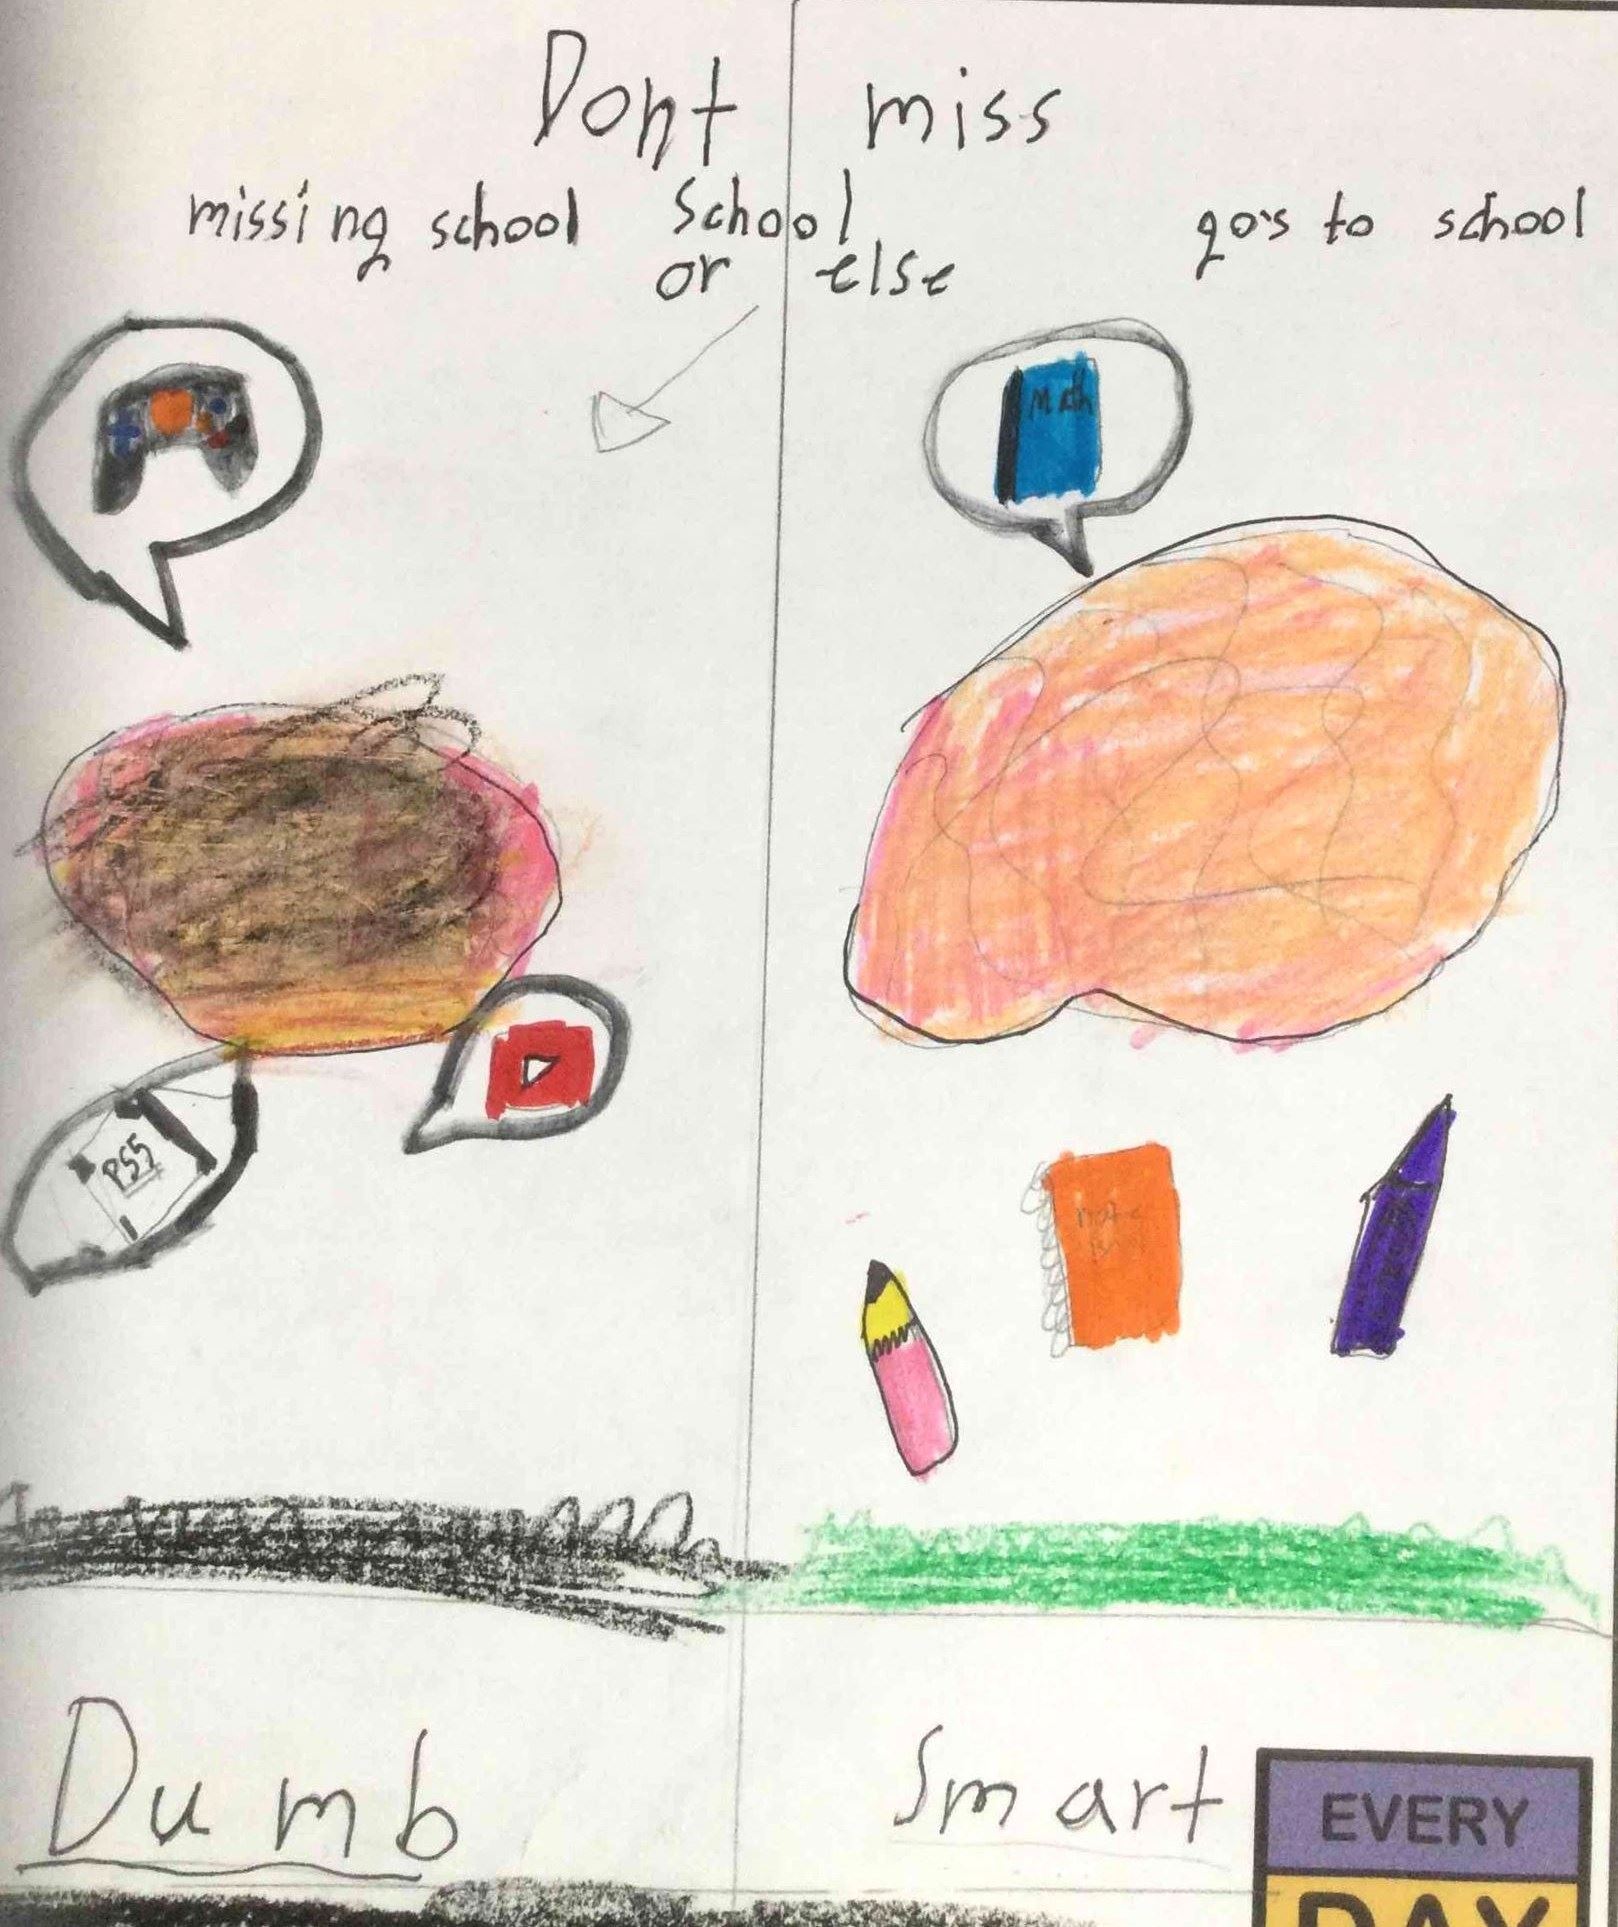 Dont miss
missing school School gos to school
or else
Math
PS5
note
Dumb Smart
EVERY
DAY